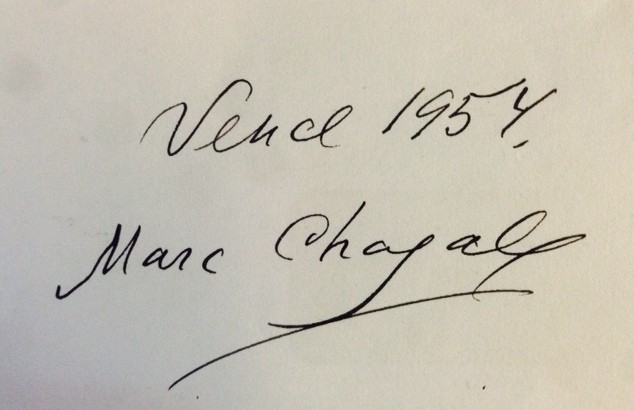 Vence 1954.
Marc Chagall